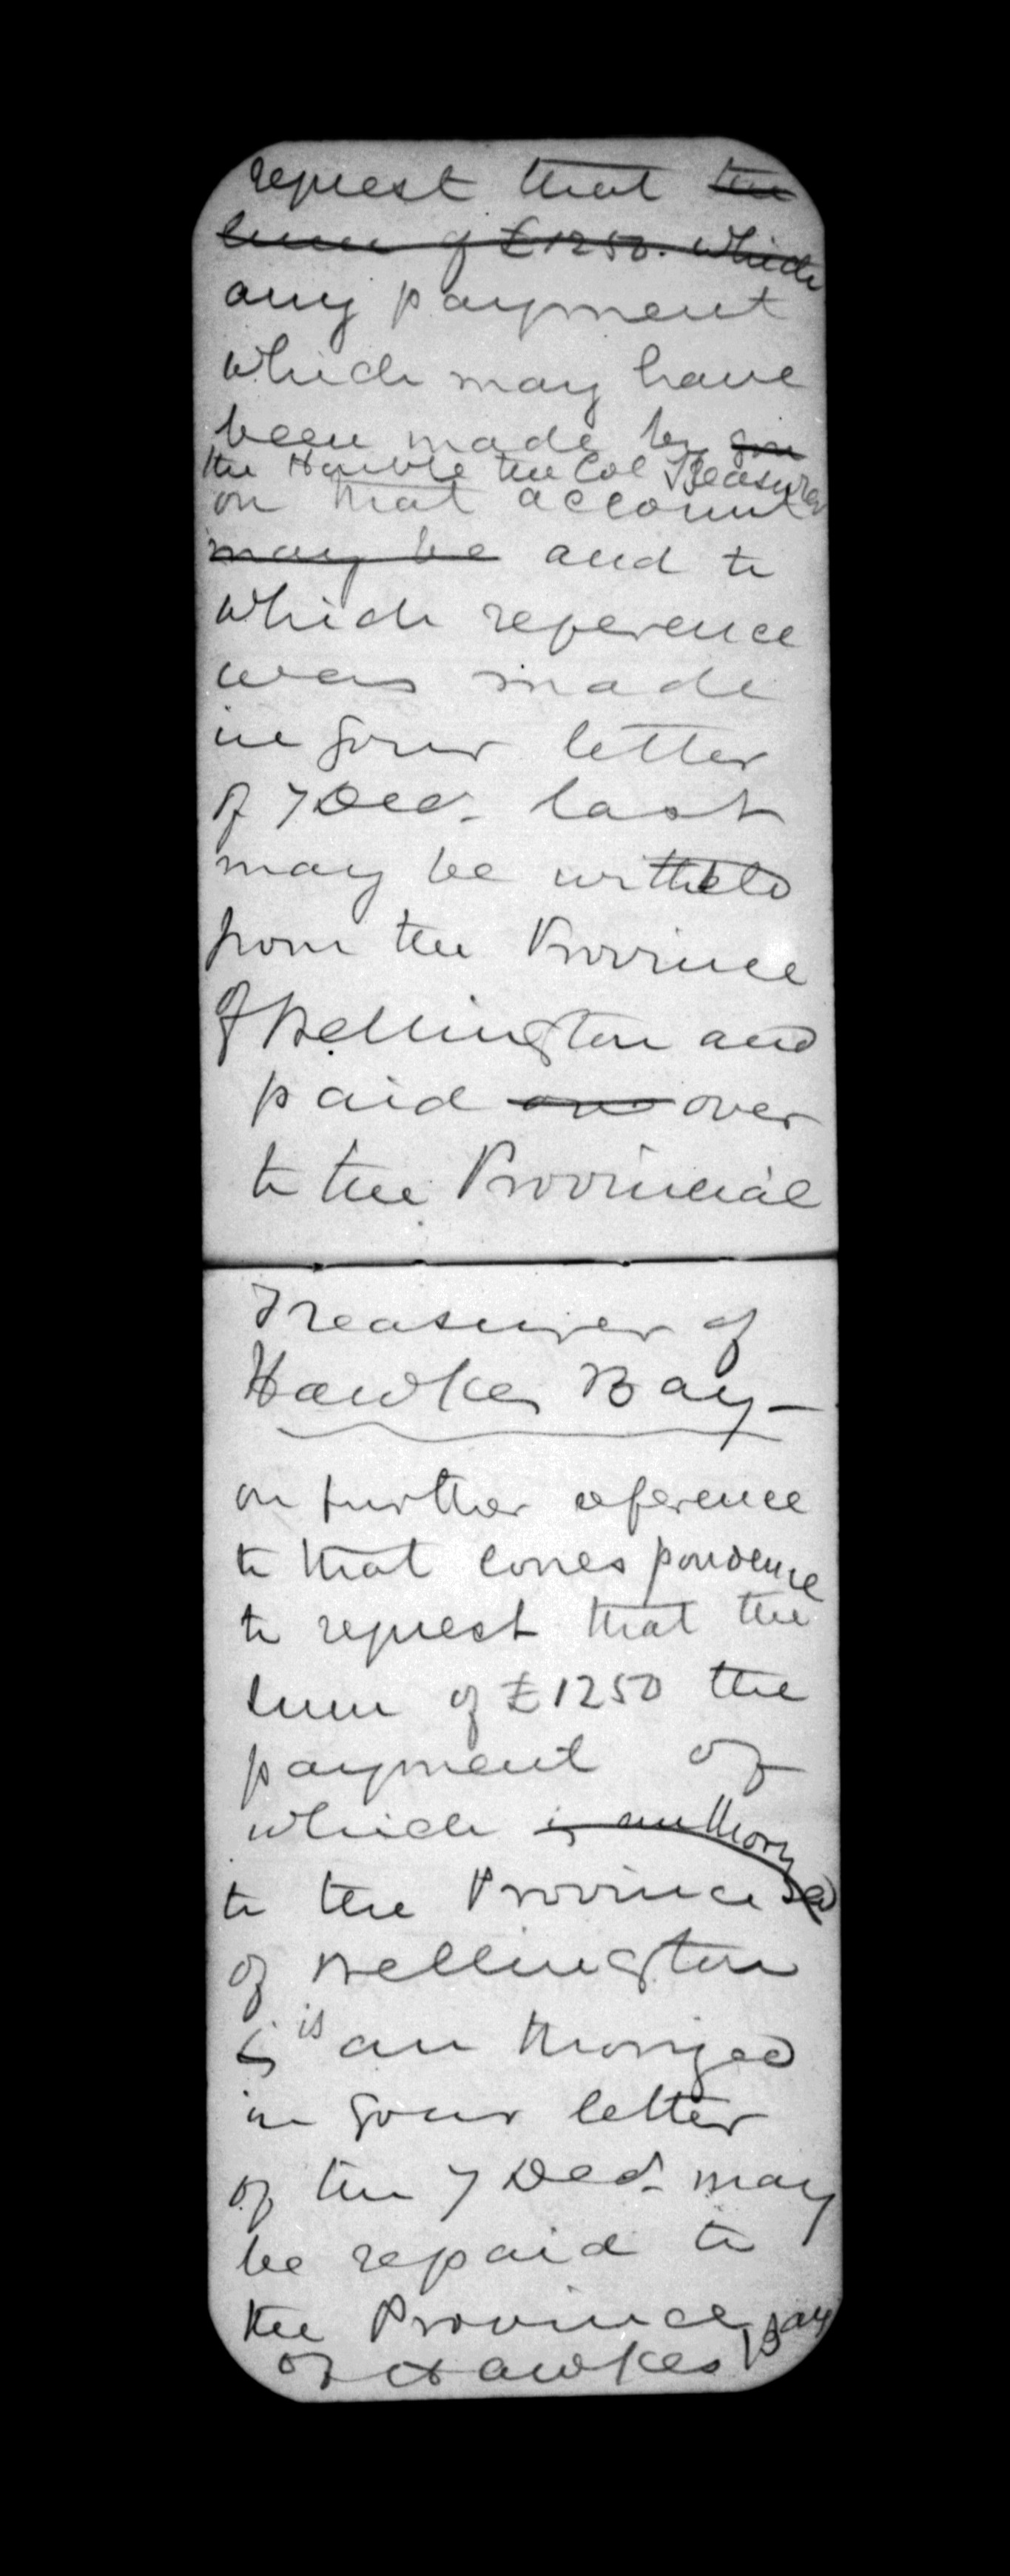 request that the
sum of £1250. which
any payment
which may have
been made by you
the Honble the Col Treasurer
on that account
may be and to
which reference
was made
in your letter
of 7 Decr. last
may be withheld
from the Province
of Wellington and
paid over
to the Provincial
Treasurer of
Hawkes Bay -
on further reference
to that correspondence
to request that the
sum of £1250 the
payment of
which is authorized
to the Province
of Wellington
is authorized
in your letter
of the 7 Decr. may
be repaid to
the Province
of Hawkes Bay